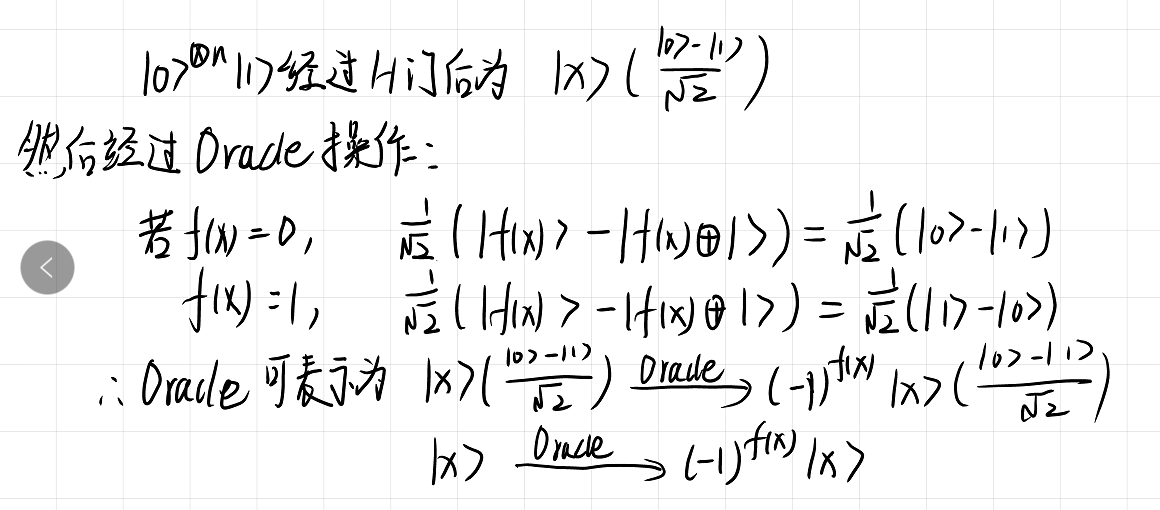 |0>^⊗n |1>经过H门后为 |x>(\frac{|0>-|1>}{√2})
然后经过Oracle操作：
若f(x)=0, \frac{1}{√2}(|f(x)>-|f(x)⊕1>)=\frac{1}{√2}(|0>-|1>)
f(x)=1, \frac{1}{√2}(|f(x)>-|f(x)⊕1>)=\frac{1}{√2}(|1>-|0>)
∴Oracle可表示为 |x>(\frac{|0>-|1>}{√2}) \xrightarrow{Oracle} (-1)^{f(x)}|x>(\frac{|0>-|1>}{√2})
|x> \xrightarrow{Oracle} (-1)^{f(x)}|x>